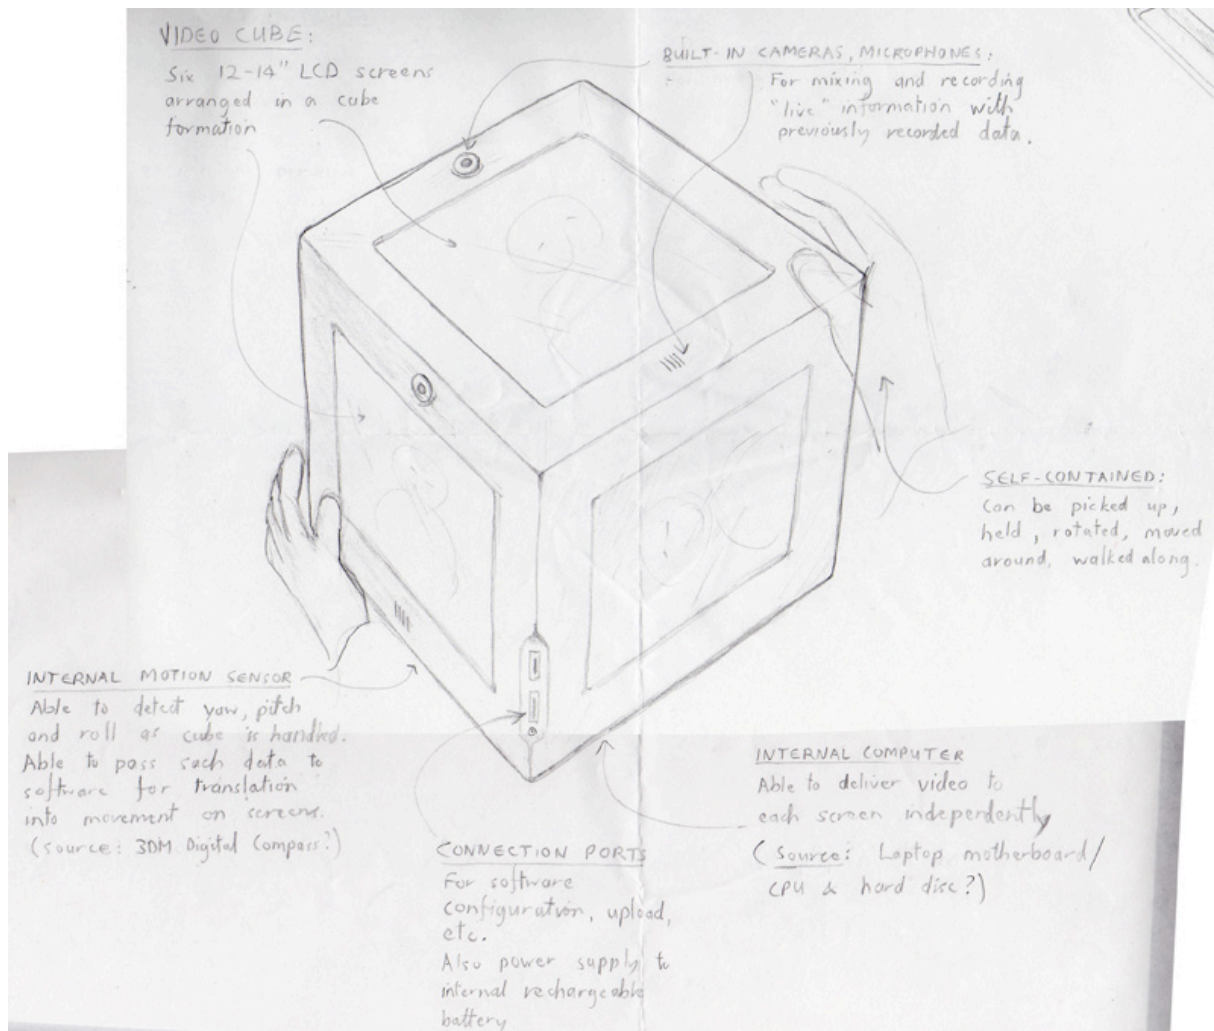 VIDEO CUBE:
Six 12-14" LCD screens
arranged in a cube
formation
BUILT-IN CAMERAS, MICROPHONES:
For mixing and recording
"live" information with
previously recorded data.
SELF-CONTAINED:
Can be picked up,
held, rotated, moved
around, walked along.
INTERNAL MOTION SENSOR
Able to detect yaw, pitch
and roll as cube is handled.
Able to pass such data to
software for translation
into movement on screens.
(source: 3DM Digital Compass?)
CONNECTION PORTS
For software
configuration, upload,
etc.
Also power supply to
internal rechargeable
battery
INTERNAL COMPUTER
Able to deliver video to
each screen independently
(Source: Laptop motherboard/
CPU & hard disc?)